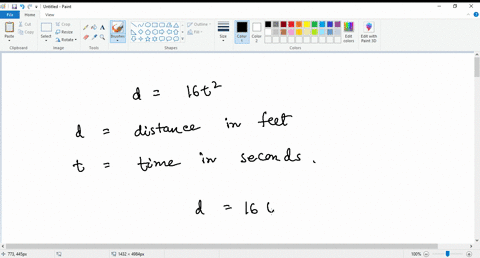 Untitled - Paint
File Home View
Paste Cut Copy Select Crop Resize Rotate Brushes Shapes Outline Fill Size Color 1 Color 2 Edit colors Edit with Paint 3D
Clipboard Image Tools Shapes Colors
d = 16t²
d = distance in feet
t = time in seconds.
d = 16 (
773, 445px 1452 × 4984px 100%